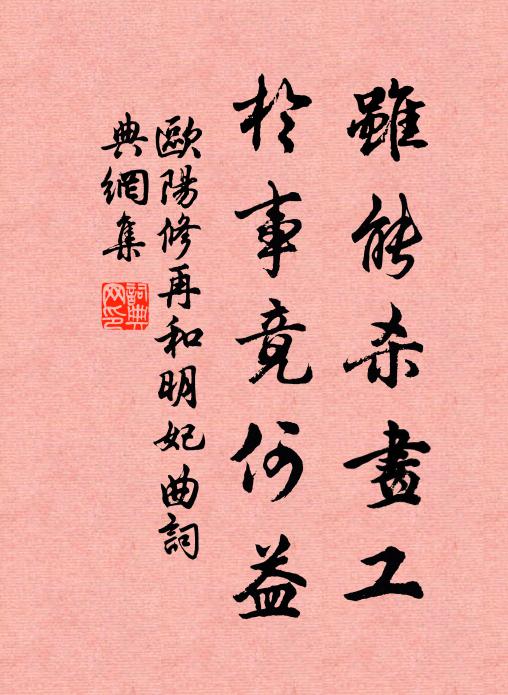 雖能杀畫工
於事竟何益
歐陽修再和明妃曲詞
典網集
詞典网印